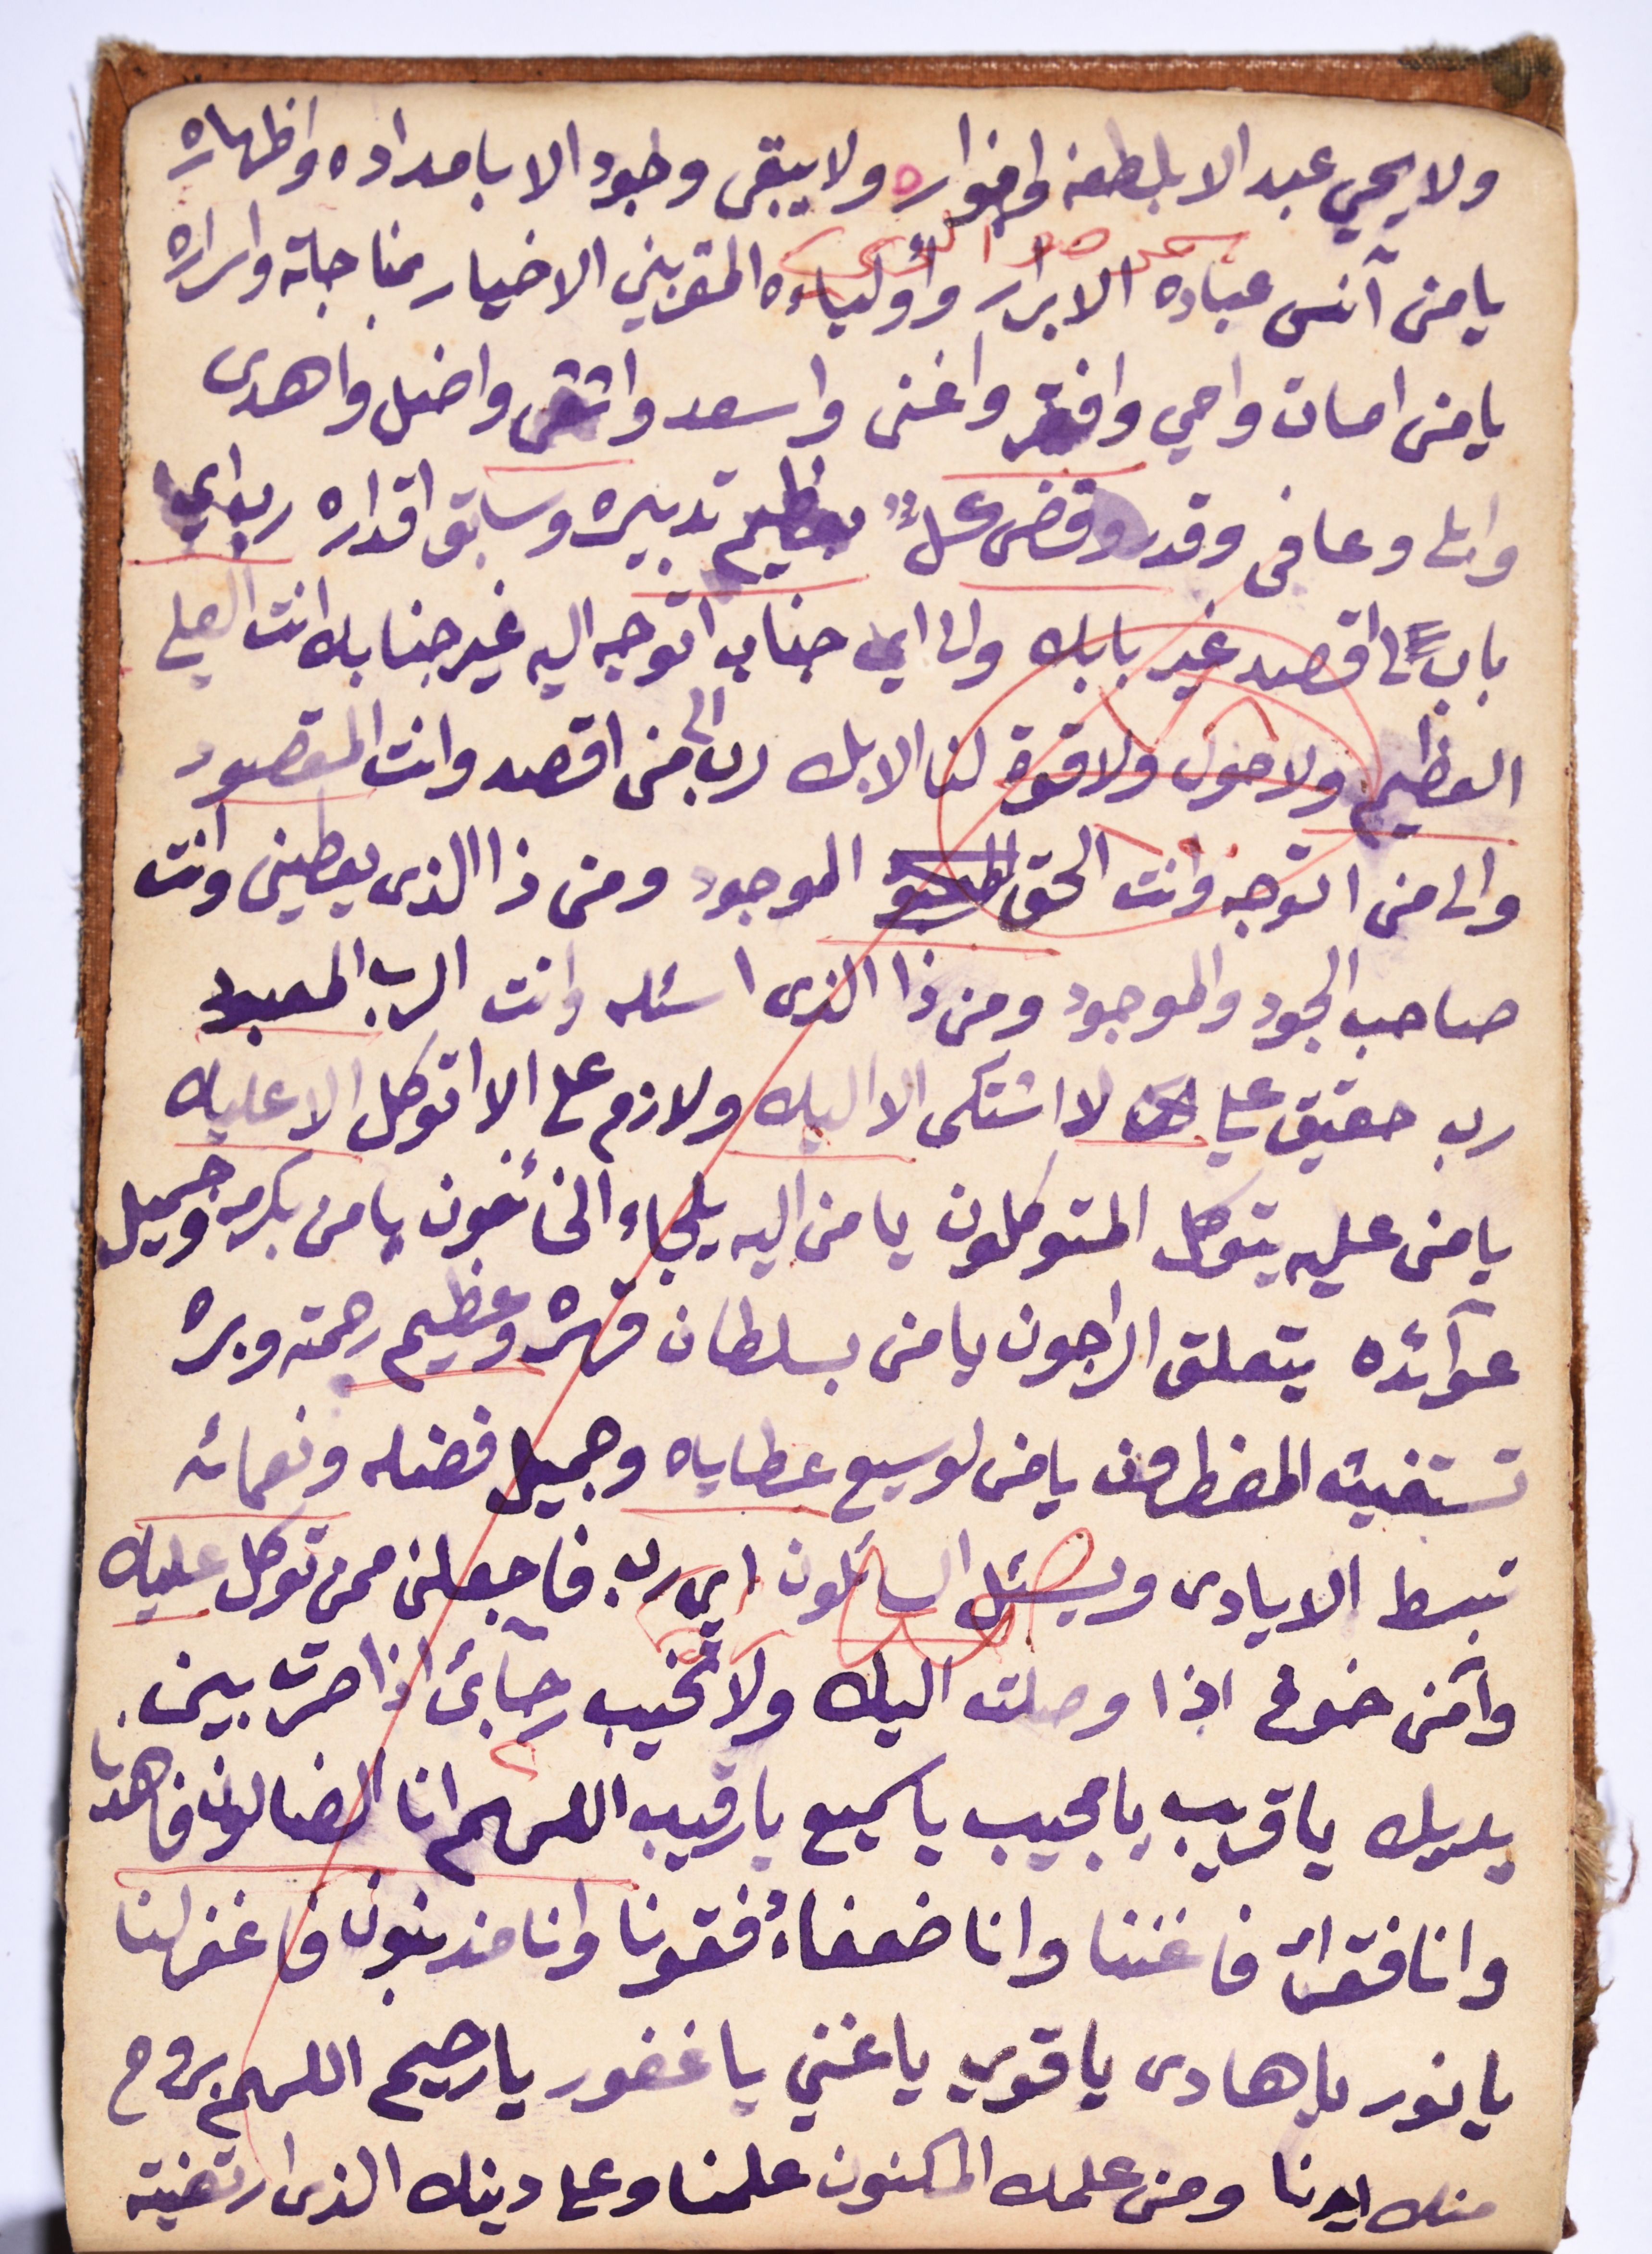 ولا يحي عبد الا بلطفه وانواره ولا يبقى وجود الا بامداده واظهاره
يا من آنس عباده الابرار وأولياءه المقربين الاخيار بمناجاته واسراره
يا من امات واحي وافقر واغنى واسعد واشقى واضل واهدى
وابلى وعافى وقدر وقضى كل بعظيم تدبيره وسابق اقداره رب اي
باب اقصد غير بابك والى اي جناب اتوجه اليه غير جنابك انت العلي
العظيم ولا حول ولا قوة لنا الا بك رب الى من اقصد وانت المقصود
والى من اتوجه وانت الحق الموجود ومن ذا الذى يعطينى وانت
صاحب الجود والموجود ومن ذا الذى اسئله وانت الرب المعبود
رب حقيق علي لا اشتكى الا اليك ولازم على الا اتوكل الا عليك
يا من عليه يتوكل المتوكلون يا من اليه يلجاء الخائفون يا من بكرمه وجميل
عوآئده يتعلق الراجون يا من بسلطان قهره وعظيم رحمته وبره
تستغيث المضطرون يا من لوسيع عطاياه وجميل فضله ونعمائه
تبسط الايادى ويسئل السائلون اي رب فاجعلنى ممن توكل عليك
وآمن خوفى اذا وصلت اليك ولا تخيب رجآئى اذا صرت بين
يديك يا قريب يا مجيب يا سميع يا رقيب اللهم انا الضالون فاهدنا
وانا فقراء فاغننا وانا ضعفاء فقونا وانا مذنبون فاغفر لنا
يا نور يا هادى يا قوي يا غني يا غفور يا رحيم اللهم بروح
منك ايدنا ومن علمك المكنون علمنا وعلى دينك الذى ارتضيته